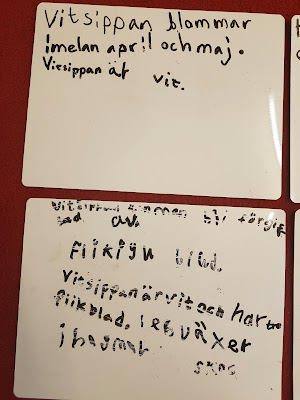 Vitsippan blommar
imelan april och maj.
Vitsippan är vit.
Vitsippan kan man bli förgif
av.
flikigu blad.
Vitsippan är vit och har tre
flikblad.
växer
skog